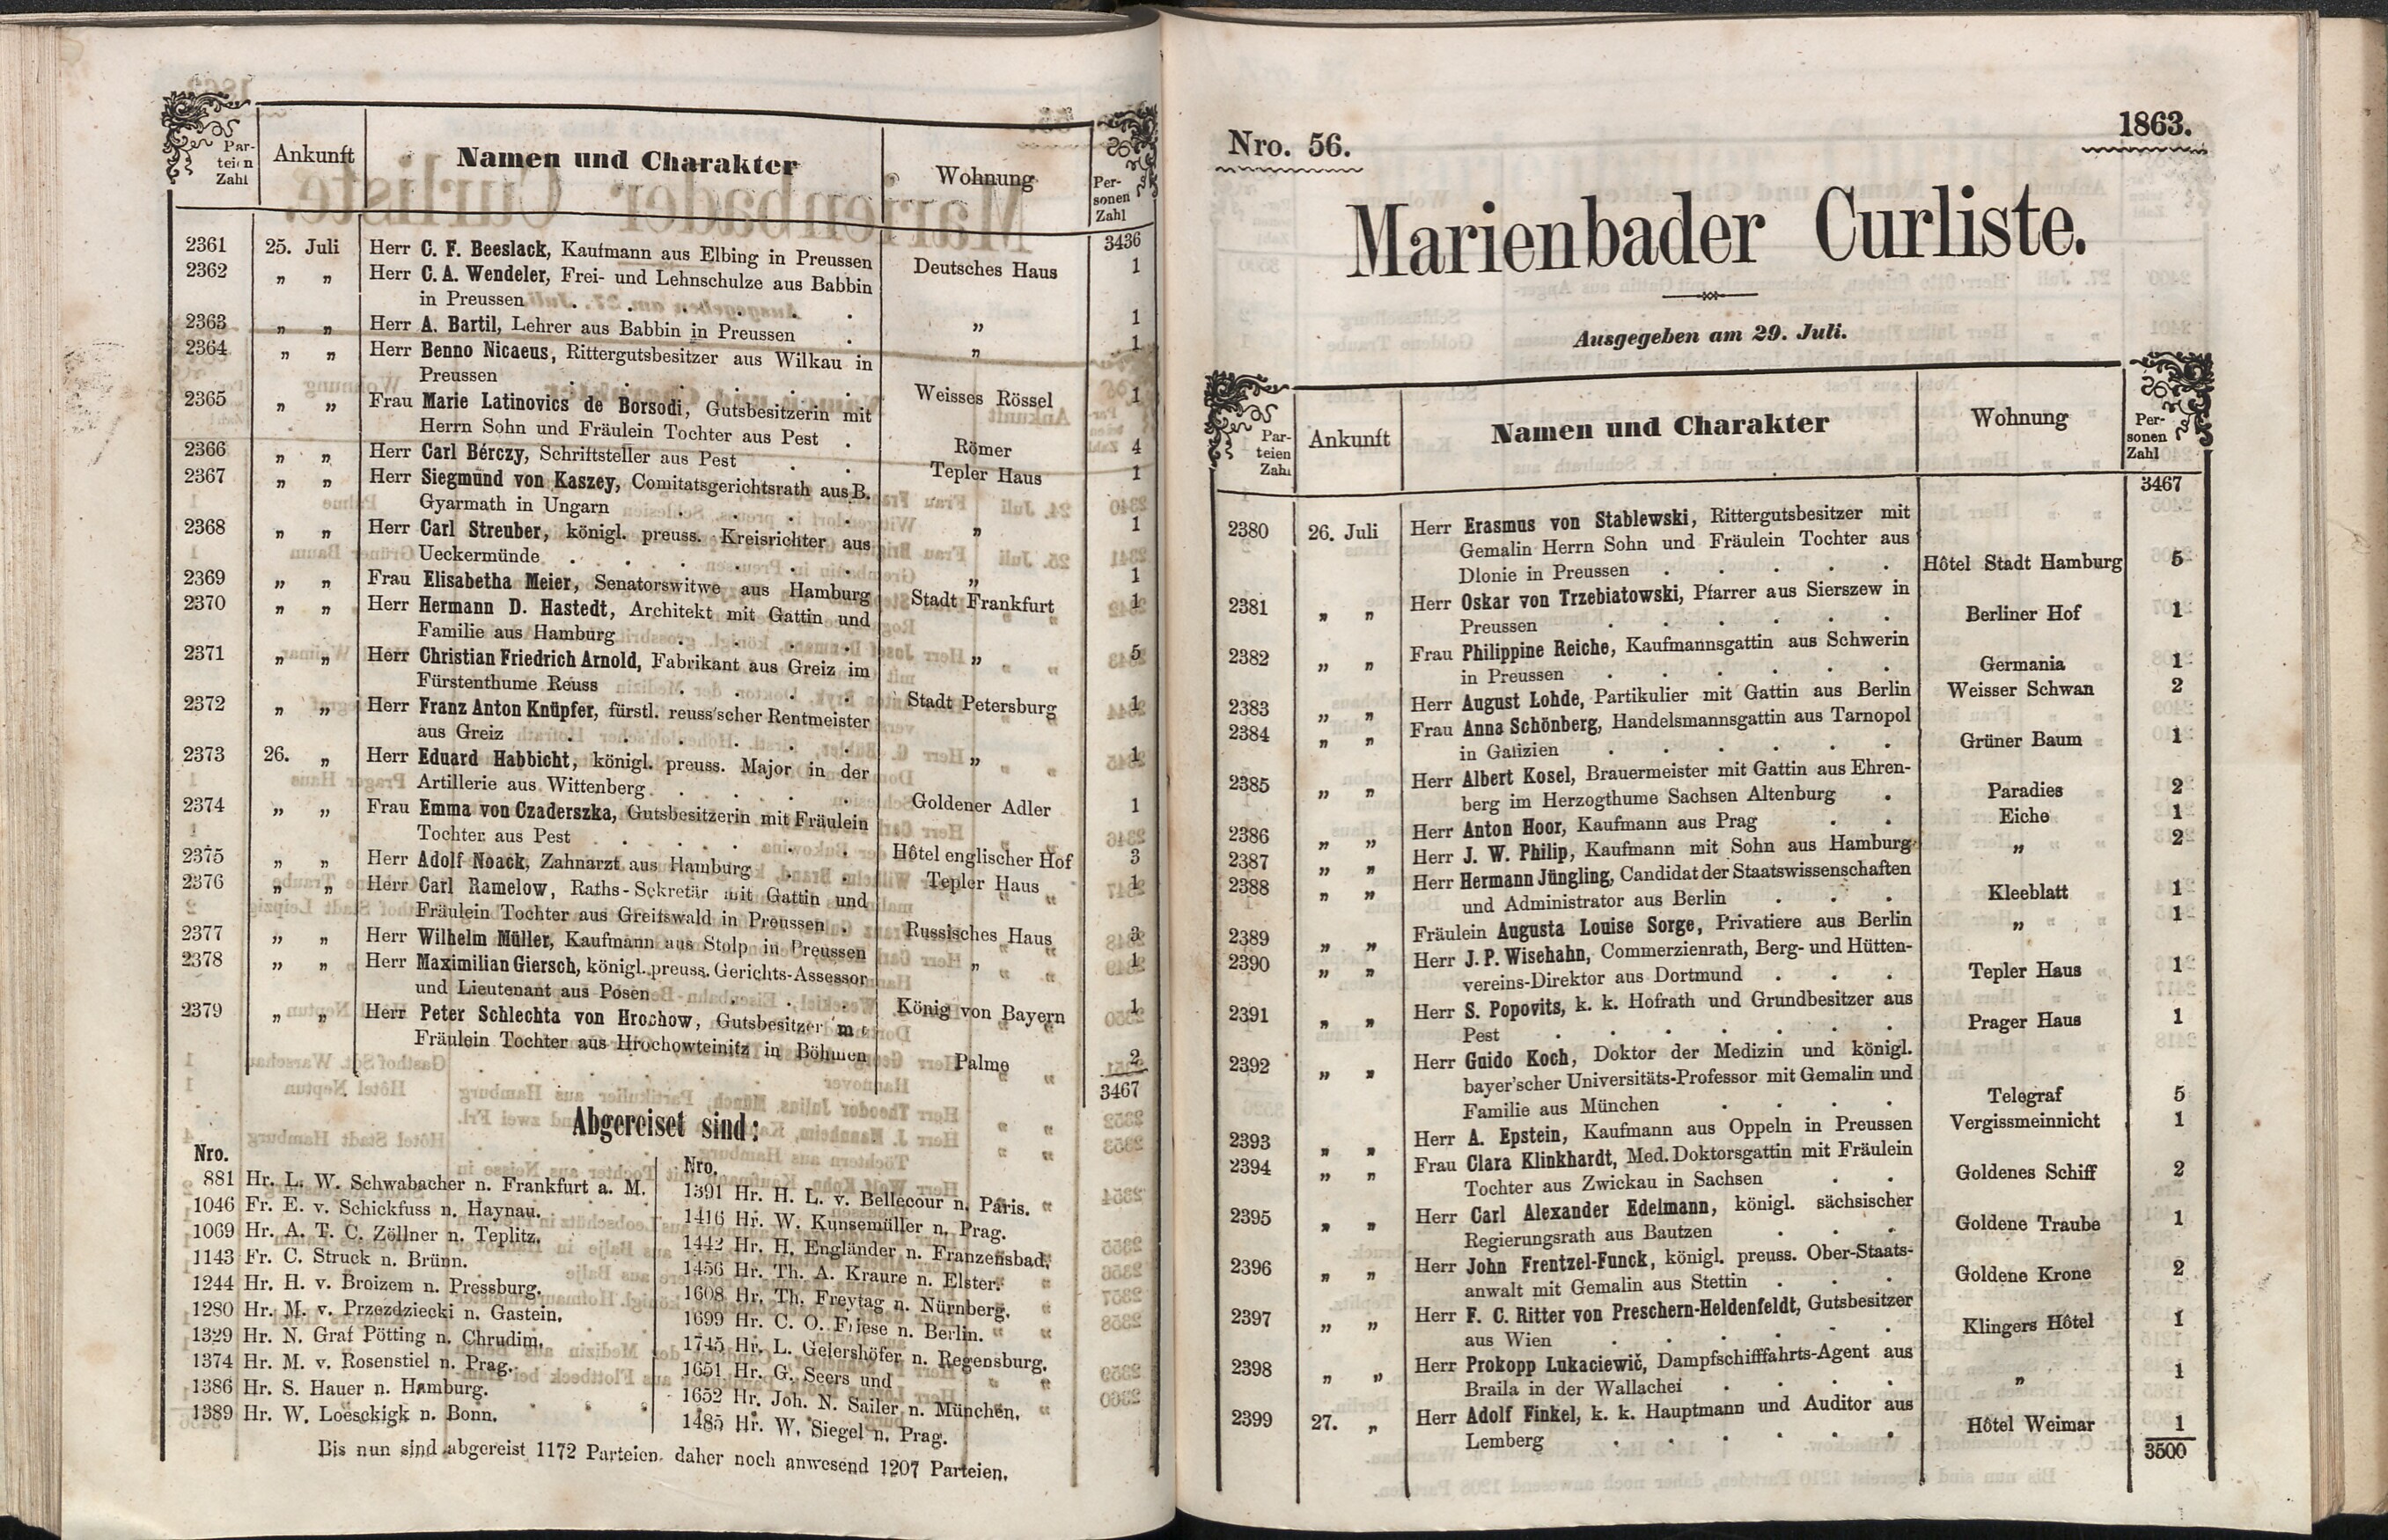 Par-
teien
Zahl
Ankunft
Namen und Charakter
Wohnung
Per-
sonen
Zahl
3436
2361 25. Juli Herr C. F. Beeslack, Kaufmann aus Elbing in Preussen Deutsches Haus 1
2362 „ „ Herr C. A. Wendeler, Frei- und Lehnschulze aus Babbin
in Preussen . . . . . „ 1
2363 „ „ Herr A. Bartil, Lehrer aus Babbin in Preussen . „ 1
2364 „ „ Herr Benno Nicaeus, Rittergutsbesitzer aus Wilkau in
Preussen . . . . . . Weisses Rössel 1
2365 „ „ Frau Marie Latinovics de Borsodi, Gutsbesitzerin mit
Herrn Sohn und Fräulein Tochter aus Pest . Römer 4
2366 „ „ Herr Carl Bérczy, Schriftsteller aus Pest . . Tepler Haus 1
2367 „ „ Herr Siegmund von Kaszey, Comitatsgerichtsrath aus B.
Gyarmath in Ungarn . . . . „ 1
2368 „ „ Herr Carl Streuber, königl. preuss. Kreisrichter aus
Ueckermünde . . . . . . „ 1
2369 „ „ Frau Elisabetha Meier, Senatorswitwe aus Hamburg Stadt Frankfurt 1
2370 „ „ Herr Hermann D. Hastedt, Architekt mit Gattin und
Familie aus Hamburg . . . . „ 5
2371 „ „ Herr Christian Friedrich Arnold, Fabrikant aus Greiz im
Fürstenthume Reuss . . . . Stadt Petersburg 1
2372 „ „ Herr Franz Anton Knüpfer, fürstl. reuss'scher Rentmeister
aus Greiz . . . . . . „ 1
2373 26. „ Herr Eduard Habbicht, königl. preuss. Major in der
Artillerie aus Wittenberg . . . . Goldener Adler 1
2374 „ „ Frau Emma von Czaderszka, Gutsbesitzerin mit Fräulein
Tochter aus Pest . . . . . Hôtel englischer Hof 3
2375 „ „ Herr Adolf Noack, Zahnarzt aus Hamburg . . Tepler Haus 1
2376 „ „ Herr Carl Ramelow, Raths-Sekretär mit Gattin und
Fräulein Tochter aus Greifswald in Preussen . Russisches Haus 3
2377 „ „ Herr Wilhelm Müller, Kaufmann aus Stolp in Preussen „ 1
2378 „ „ Herr Maximilian Giersch, königl. preuss. Gerichts-Assessor
und Lieutenant aus Posen . . . . König von Bayern 1
2379 „ „ Herr Peter Schlechta von Hrochow, Gutsbesitzer
Fräulein Tochter aus Hrochowteinitz in Böhmen Palme 2
3467
Abgereiset sind:
Nro.
881 Hr. L. W. Schwabacher n. Frankfurt a. M.
1046 Fr. E. v. Schickfuss n. Haynau.
1069 Hr. A. T. C. Zöllner n. Teplitz.
1143 Fr. C. Struck n. Brünn.
1244 Hr. H. v. Broizem n. Pressburg.
1280 Hr. M. v. Przezdziecki n. Gastein.
1329 Hr. N. Graf Pötting n. Chrudim.
1374 Hr. M. v. Rosenstiel n. Prag.
1386 Hr. S. Hauer n. Hamburg.
1389 Hr. W. Loesckigk n. Bonn.
Nro.
1391 Hr. H. L. v. Bellecour n. Paris.
1416 Hr. W. Kunsemüller n. Prag.
1442 Hr. H. Engländer n. Franzensbad.
1456 Hr. Th. A. Kraure n. Elster.
1608 Hr. Th. Freytag n. Nürnberg.
1699 Hr. C. O. Friese n. Berlin.
1745 Hr. L. Geiershöfer n. Regensburg.
1651 Hr. G. Seers und
1652 Hr. Joh. N. Sailer n. München.
1485 Hr. W. Siegel n. Prag.
Bis nun sind abgereist 1172 Parteien, daher noch anwesend 1207 Parteien.
Nro. 56.
1863.
Marienbader Curliste.
Ausgegeben am 29. Juli.
Par-
teien
Zahl
Ankunft
Namen und Charakter
Wohnung
Per-
sonen
Zahl
3467
2380 26. Juli Herr Erasmus von Stablewski, Rittergutsbesitzer mit
Gemalin Herrn Sohn und Fräulein Tochter aus
Dlonie in Preussen . . . . . Hôtel Stadt Hamburg 5
2381 „ „ Herr Oskar von Trzebiatowski, Pfarrer aus Sierszew in
Preussen . . . . . . Berliner Hof 1
2382 „ „ Frau Philippine Reiche, Kaufmannsgattin aus Schwerin
in Preussen . . . . . . Germania 1
2383 „ „ Herr August Lohde, Partikulier mit Gattin aus Berlin Weisser Schwan 2
2384 „ „ Frau Anna Schönberg, Handelsmannsgattin aus Tarnopol
in Galizien . . . . . . Grüner Baum 1
2385 „ „ Herr Albert Kosel, Brauermeister mit Gattin aus Ehren-
berg im Herzogthume Sachsen Altenburg . Paradies 2
2386 „ „ Herr Anton Hoor, Kaufmann aus Prag . . Eiche 1
2387 „ „ Herr J. W. Philip, Kaufmann mit Sohn aus Hamburg „ 2
2388 „ „ Herr Hermann Jüngling, Candidat der Staatswissenschaften
und Administrator aus Berlin . . . Kleeblatt 1
2389 „ „ Fräulein Augusta Louise Sorge, Privatiere aus Berlin „ 1
2390 „ „ Herr J. P. Wisehahn, Commerzienrath, Berg- und Hütten-
vereins-Direktor aus Dortmund . . . Tepler Haus 1
2391 „ „ Herr S. Popovits, k. k. Hofrath und Grundbesitzer aus
Pest . . . . . . . Prager Haus 1
2392 „ „ Herr Guido Koch, Doktor der Medizin und königl.
bayer'scher Universitäts-Professor mit Gemalin und
Familie aus München . . . . Telegraf 5
2393 „ „ Herr A. Epstein, Kaufmann aus Oppeln in Preussen Vergissmeinnicht 1
2394 „ „ Frau Clara Klinkhardt, Med. Doktorsgattin mit Fräulein
Tochter aus Zwickau in Sachsen . . Goldenes Schiff 2
2395 „ „ Herr Carl Alexander Edelmann, königl. sächsischer
Regierungsrath aus Bautzen . . . Goldene Traube 1
2396 „ „ Herr John Frentzel-Funck, königl. preuss. Ober-Staats-
anwalt mit Gemalin aus Stettin . . . Goldene Krone 2
2397 „ „ Herr F. C. Ritter von Preschern-Heldenfeldt, Gutsbesitzer
aus Wien . . . . . . Klingers Hôtel 1
2398 „ „ Herr Prokopp Lukaciewič, Dampfschifffahrts-Agent aus
Braila in der Wallachei . . . . „ 1
2399 27. „ Herr Adolf Finkel, k. k. Hauptmann und Auditor aus
Lemberg . . . . . . Hôtel Weimar 1
3500